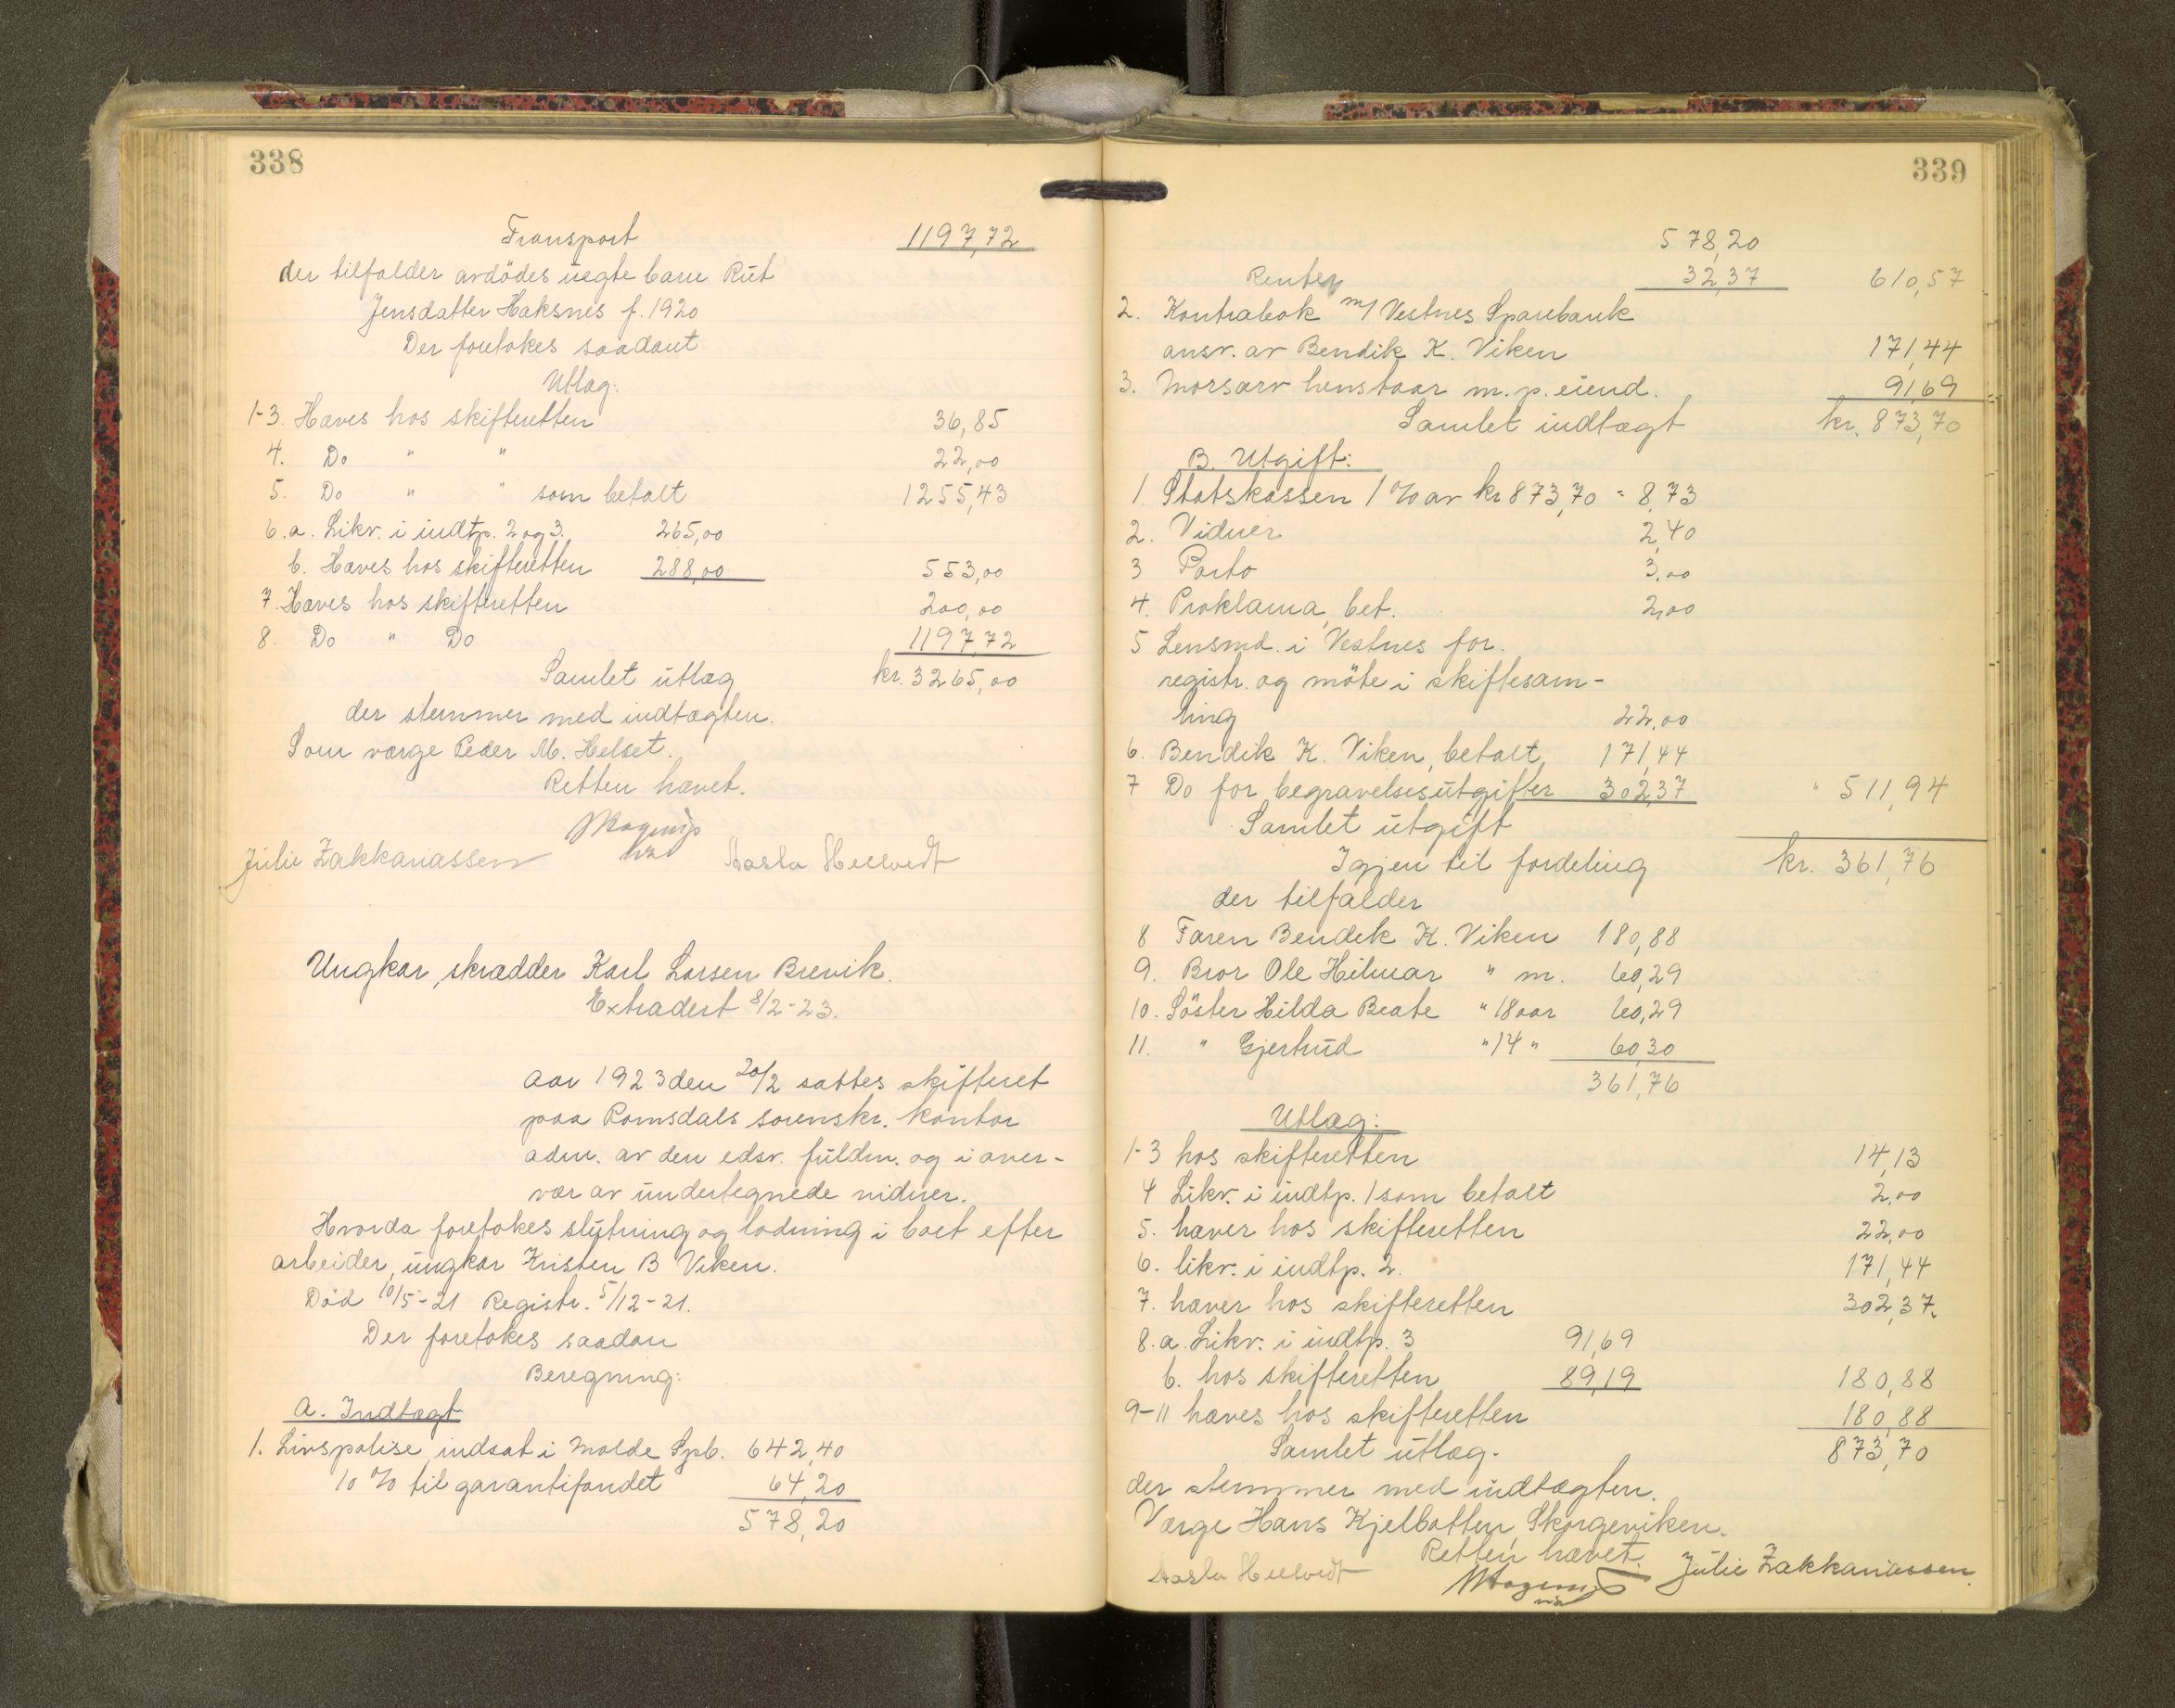 338
Transport 1197,72
der tilfalder avdödes uegte barn Rut
Jensdatter Haksnes f. 1920
Der foretokes saadant
Utlæg:
1-3. Hæves hos skifteretten 36,85
4. Do " " 22,00
5. Do " " som betalt 1255,43
6.a. Likv. i indtp. 2 og 3. 265,00
b. Hæves hos skifteretten 288,00 553,00
7. Hæves hos skifteretten 200,00
8. Do " Do 1197,72
Samlet utlæg kr. 3265,00
der stemmer med indtægten.
Som værge Peder M. Helset.
Retten hævet.
Julie Zakkariassen Aasla
Ungkar, skrædder Karl Larsen Brevik.
Extradert 8/2-23.
Aar 1923 den 20/2 sattes skifteret
paa Romsdals sorenskr. kontor
adm. av den edsv. fuldm. og i over-
vær av undertegnede vidner.
Hvorda foretokes slutning og lodning i boet efter
arbeider, ungkar Kristen B Viken.
Död 10/5-21 Registr. 5/12-21.
Der foretokes saadan
Beregning:
A. Indtægt
1. Livspolise, indsat i Molde Spb. 642,40
10 % til garantifondet 64,20
578,20
339
578,20
Renter 32,37 610,57
2. Kontrabok m/ Vestnes Sparebank
ansv. av Bendik K. Viken 171,44
3. Morsarv henstaar m. p. eiend. 91,69
Samlet indtægt kr. 873,70
B. Utgift:
1. Statskassen 1 % av kr 873,70 = 8,73
2. Vidner 2,40
3 Porto 3,00
4. Proklama, bet. 2,00
5 Lensmd. i Vestnes for.
registr. og möte i skiftesam-
ling 22,00
6. Bendik K. Viken, betalt 171,44
7 Do for begravelsesutgifter 302,37 " 511,94
Samlet utgift
Igjen til fordeling kr. 361,76
der tilfalder
8 Faren Bendik K. Viken 180,88
9. Bror Ole Hilmar " m. 60,29
10. Söster Hilda Beate " 18 aar 60,29
11. " Gjertrud " 14 " 60,30
361,76
Utlæg:
1-3 hos skifteretten 14,13
4 Likv. i indtp. 1 som betalt 2,00
5. hæver hos skifteretten 22,00
6. likv. i indtp. 2. 171,44
7. hæver hos skifteretten 302,37
8.a. Likv. i indtp. 3 91,69
b. hos skifteretten 89,19 180,88
9-11 hæves hos skifteretten 180,88
Samlet utlæg. 873,70
der stemmer med indtægten.
Værge Hans Kjelbotten, Skorgeviken.
Retten hævet.
Aasla Julie Zakkariassen